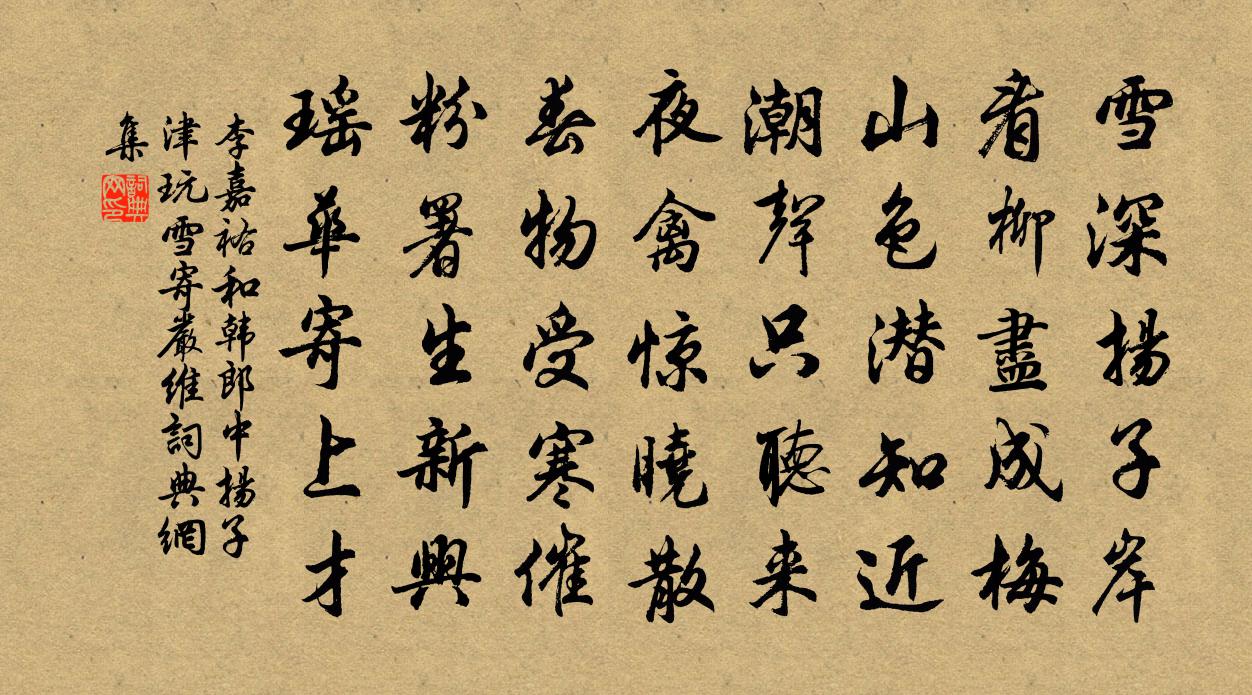 雪深揚子岸
看柳盡成梅
山色潜知近
潮聲只聽来
夜禽惊曉散
春物受寒催
粉署生新興
瑶華寄上才
李嘉祐和韩郎中揚子
津玩雪寄嚴維詞典網
集
詞典
网印